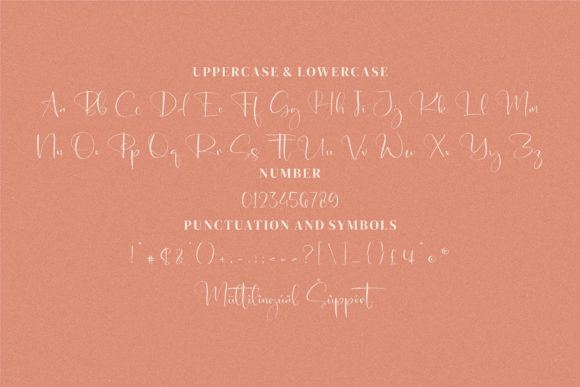 UPPERCASE & LOWERCASE
Aa Bb Cc Dd Ee Ff Gg Hh Ii Jj Kk Ll Mm
Nn Oo Pp Qq Rr Ss Tt Uu Vv Ww Xx Yy Zz
NUMBER
0123456789
PUNCTUATION AND SYMBOLS
!"#$&'()+,-.:;<=>?[\]_{}£¥
Mültilingüäl Süppört